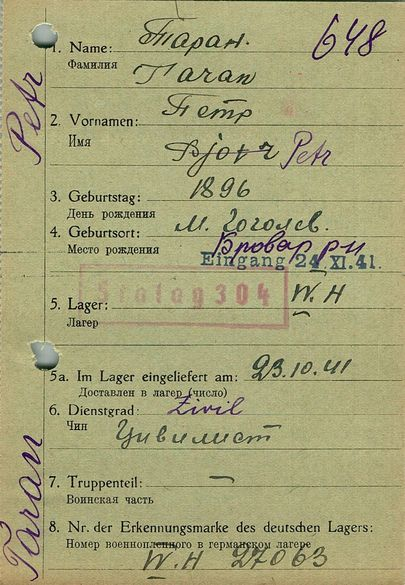 648
Petr
1. Name: Таран.
Фамилия
Taran
2. Vornamen: Петр
Имя
Pjotr Petr
3. Geburtstag: 1896
День рождения
4. Geburtsort: м. Гоголев.
Место рождения Бровар р-н
Eingang 24 XI. 41.
Stalag 304
5. Lager: W.H
Лагер
5a. Im Lager eingeliefert am: 23.10.41
Доставлен в лагер (число)
6. Dienstgrad: Zivil
Чин
Цивилист
7. Truppenteil: —
Воинская часть
8. Nr. der Erkennungsmarke des deutschen Lagers:
Номер военнопленного в германском лагере
W.H 27063
Taran